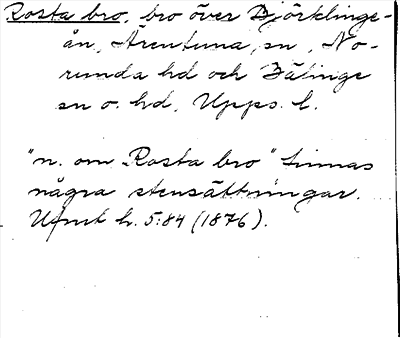 Rosta bro, bro över Björklinge-
ån, Ärentuna sn, No-
runda hd och Bälinge
sn o. hd, Upps. l.
"n. om Rosta bro" finnas
några stensättningar.
Ufmt h. 5:84 (1876).